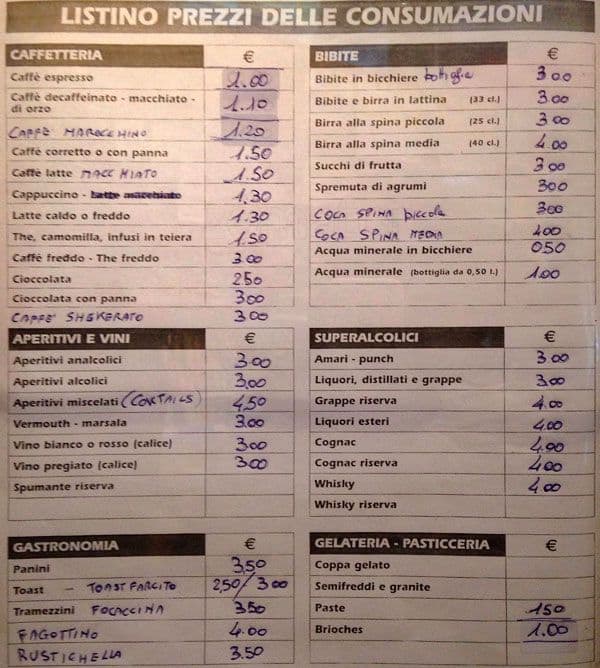 LISTINO PREZZI DELLE CONSUMAZIONI
CAFFETTERIA €
Caffè espresso 1.00
Caffè decaffeinato - macchiato -
di orzo 1.10
CAFFÈ MAROCCHINO 1.20
Caffè corretto o con panna 1.50
Caffè latte MACCHIATO 1.50
Cappuccino - Latte macchiato 1.30
Latte caldo o freddo 1.30
The, camomilla, infusi in teiera 1.50
Caffè freddo - The freddo 3.00
Cioccolata 2.50
Cioccolata con panna 3.00
CAFFÈ SHEKERATO 3.00
APERITIVI E VINI €
Aperitivi analcolici 3.00
Aperitivi alcolici 3.00
Aperitivi miscelati (COKTAILS) 4.50
Vermouth - marsala 3.00
Vino bianco o rosso (calice) 3.00
Vino pregiato (calice) 3.00
Spumante riserva
GASTRONOMIA €
Panini 3.50
Toast - TOAST FARCITO 2.50/3.00
Tramezzini FOCACCINA 3.50
FAGOTTINO 4.00
RUSTICHELLA 3.50
BIBITE €
Bibite in bicchiere bottiglia 3.00
Bibite e birra in lattina (33 cl.) 3.00
Birra alla spina piccola (25 cl.) 3.00
Birra alla spina media (40 cl.) 4.00
Succhi di frutta 3.00
Spremuta di agrumi 3.00
COCA SPINA piccola 3.00
COCA SPINA MEDIA 4.00
Acqua minerale in bicchiere 0.50
Acqua minerale (bottiglia da 0,50 l.) 1.00
SUPERALCOLICI €
Amari - punch 3.00
Liquori, distillati e grappe 3.00
Grappe riserva 4.00
Liquori esteri 4.00
Cognac 4.00
Cognac riserva 4.00
Whisky 4.00
Whisky riserva
GELATERIA - PASTICCERIA €
Coppa gelato
Semifreddi e granite
Paste 1.50
Brioches 1.00